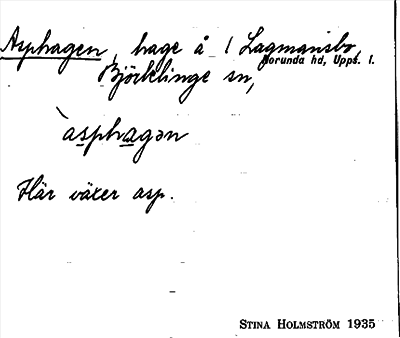 Asphagen, hage å 1 Lagmansbo,
Norunda hd, Upps. l.
Björklinge sn,
`asphagən
Här växer asp.
STINA HOLMSTRÖM 1935